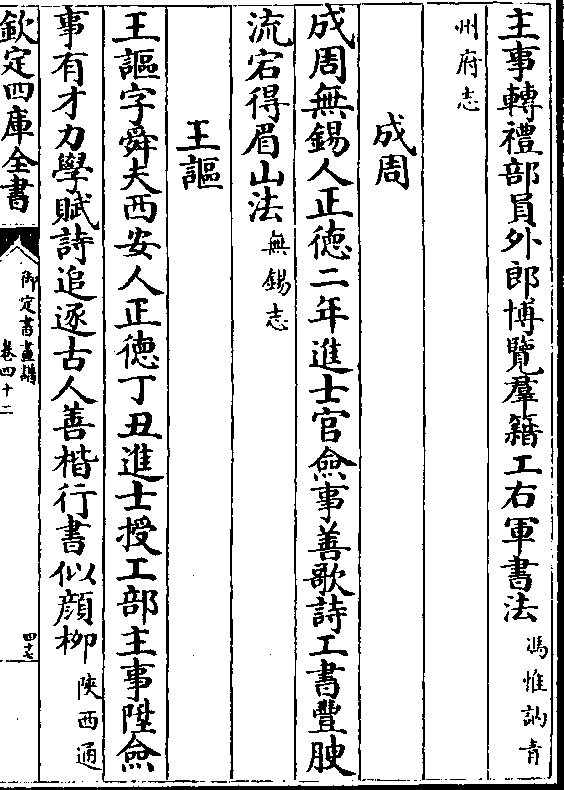 主事轉禮部員外郎博覽羣籍工右軍書法馮惟訥青
州府志
成周
成周無錫人正德二年進士官僉事善歌詩工書豐腴
流宕得眉山法無錫志
王謳
王謳字舜夫西安人正德丁丑進士授工部主事陞僉
事有才力學賦詩追逐古人善楷行書似顔柳陜西通
欽定四庫全書
御定書畫譜
卷四十二
四七